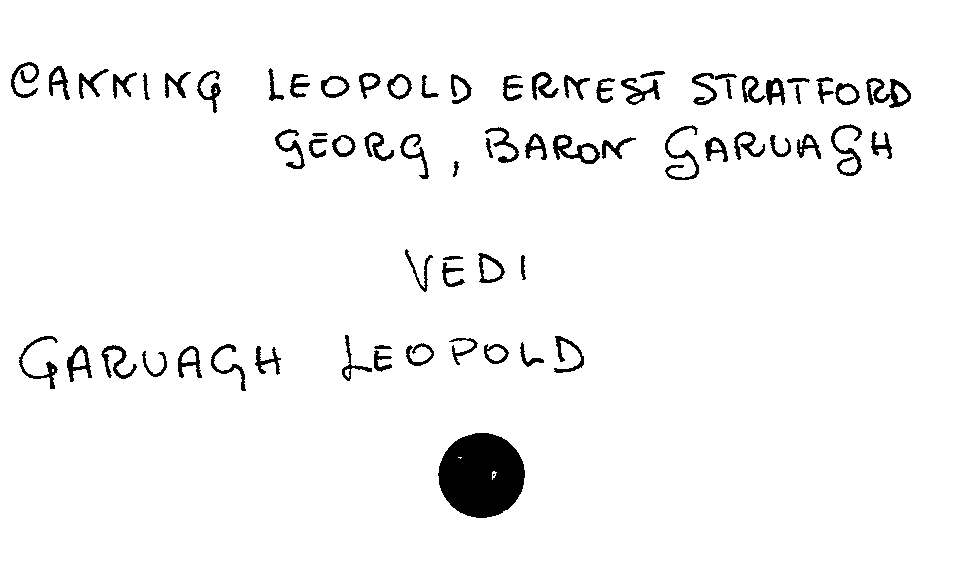 CANNING LEOPOLD ERNEST STRATFORD
GEORG, BARON GARUAGH
VEDI
GARUAGH LEOPOLD